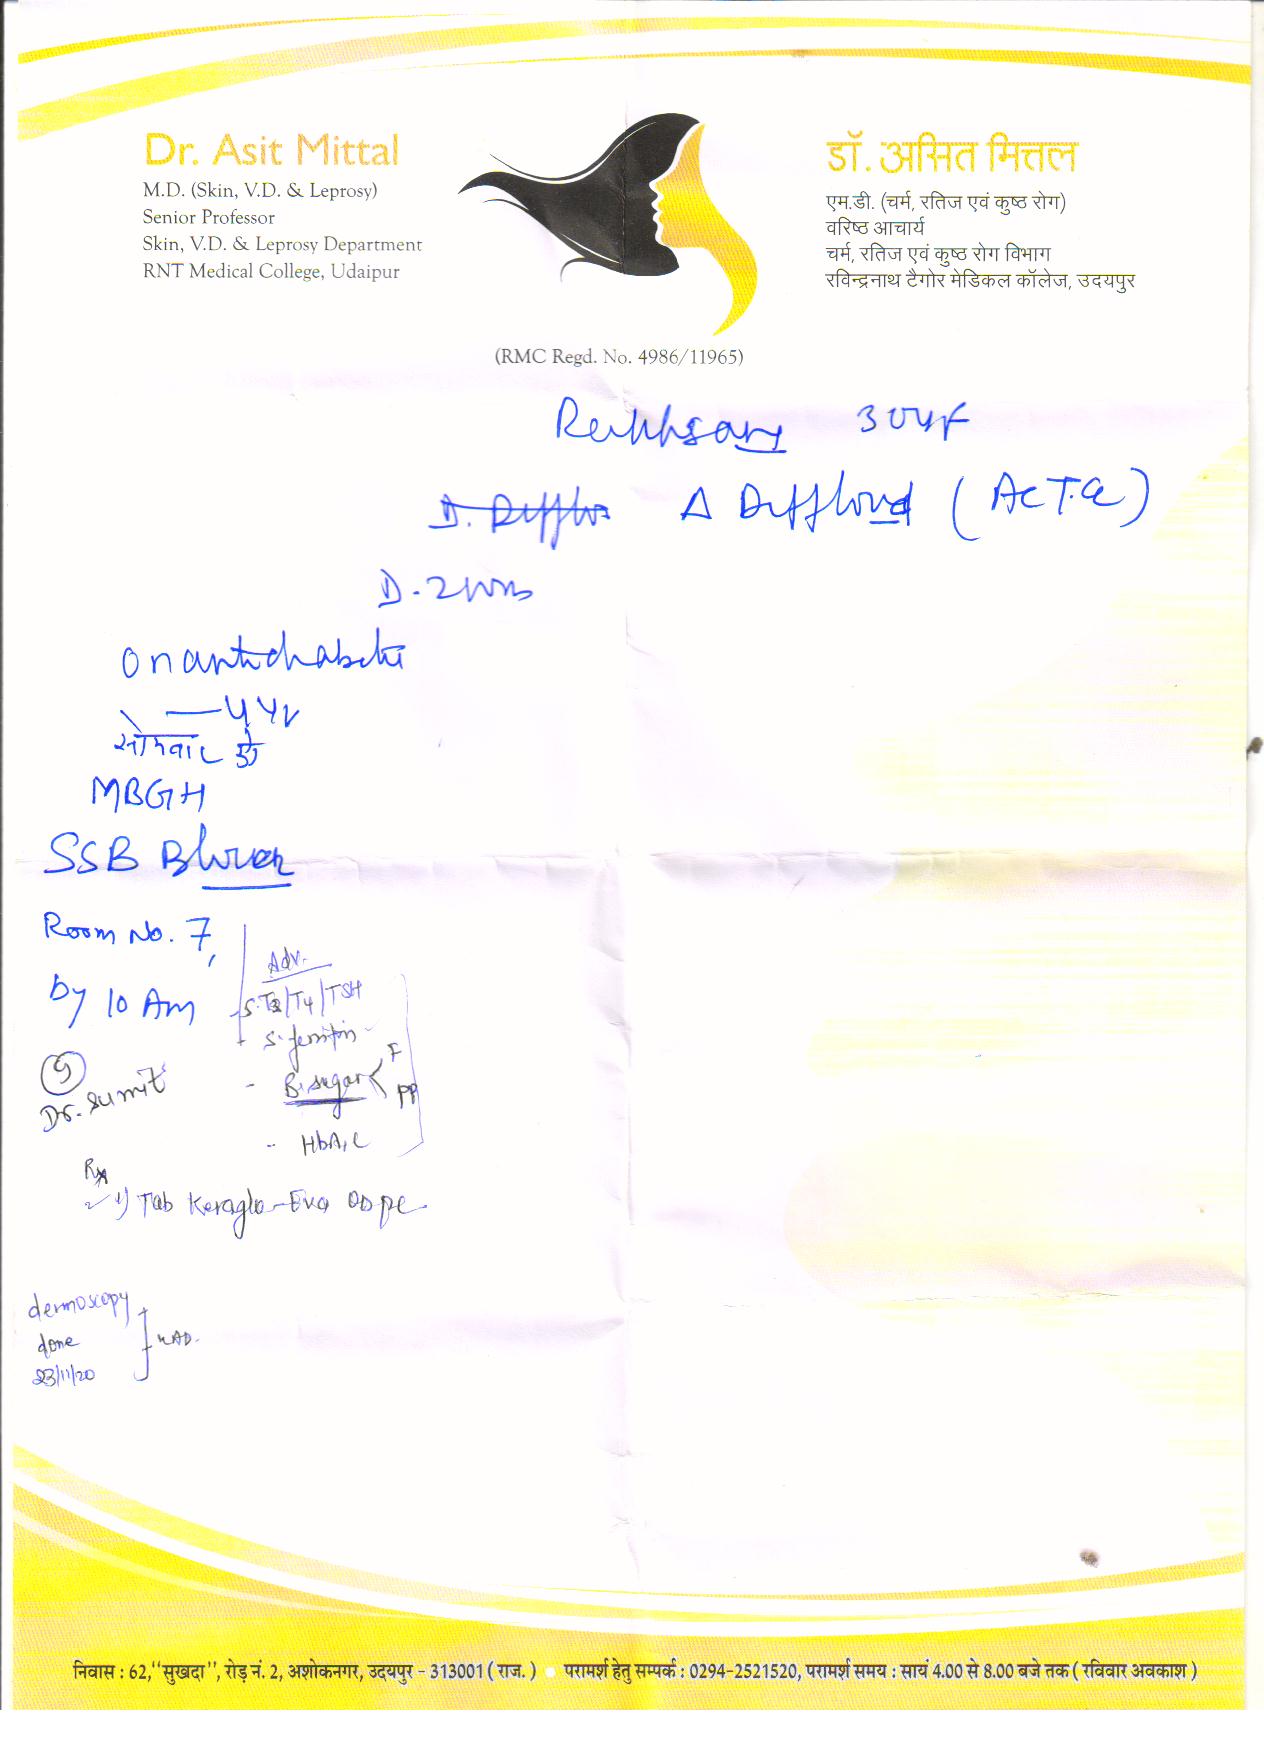 Dr. Asit Mittal
M.D. (Skin, V.D. & Leprosy)
Senior Professor
Skin, V.D. & Leprosy Department
RNT Medical College, Udaipur
डॉ. असित मित्तल
एम.डी. (चर्म, रतिज एवं कुष्ठ रोग)
वरिष्ठ आचार्य
चर्म, रतिज एवं कुष्ठ रोग विभाग
रविन्द्रनाथ टैगोर मेडिकल कॉलेज, उदयपुर
(RMC Regd. No. 4986/11965)
30yF
Δ
D-
on antidiabetic
सोमवार को
MBGH
SSB
Room No. 7,
by 10 Am
Adv.
S.T3/T4/TSH
S. ferritin
- B. sugar < F PP
- HbA1C
Dr. Sumit
Rx
1) Tab Keraglo-Eva OD pc
dermoscopy
done
23/11/20
निवास : 62,"सुखदा", रोड़ नं. 2, अशोकनगर, उदयपुर - 313001 ( राज. ) • परामर्श हेतु सम्पर्क : 0294-2521520, परामर्श समय : सायं 4.00 से 8.00 बजे तक ( रविवार अवकाश )